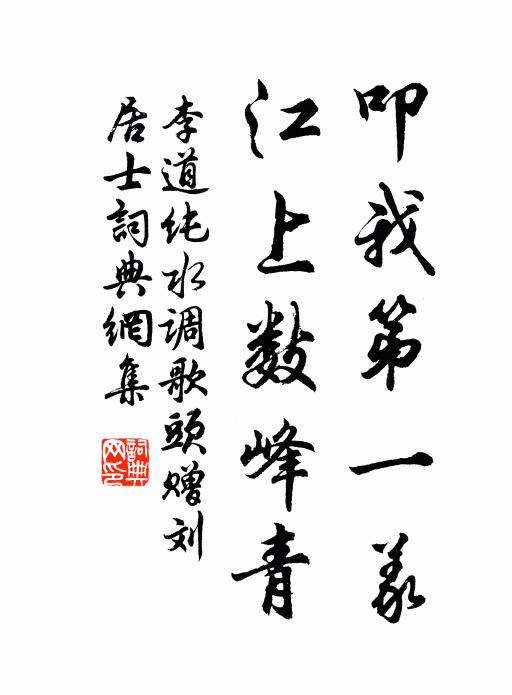 叩我第一义
江上数峰青
李道纯水调歌头赠刘
居士詞典網集
詞典
网印